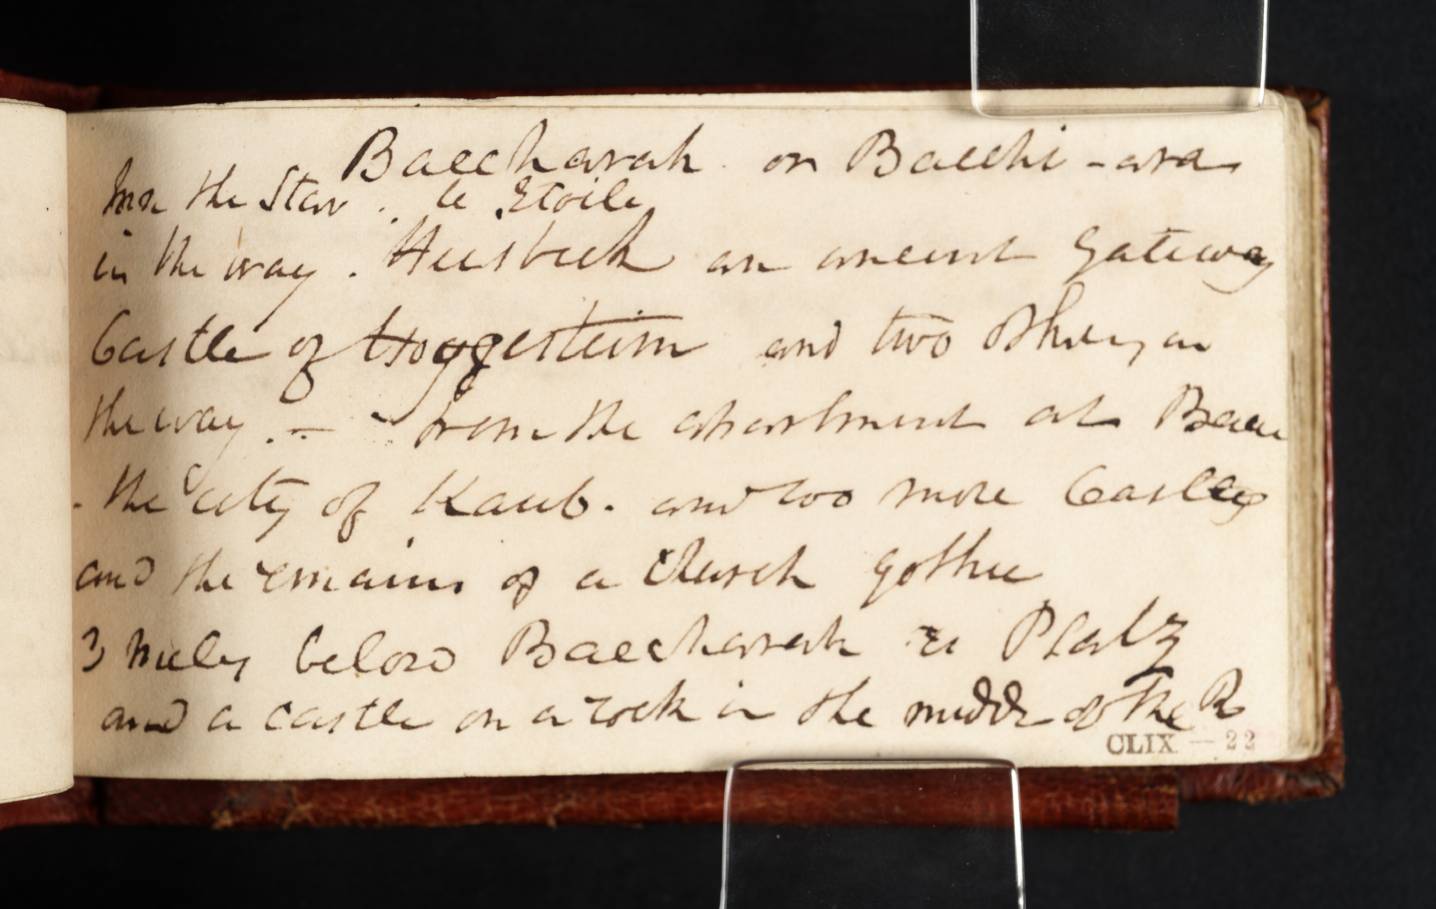 Baccharah or Bacchi-ara
Inn the Star. le Etoile
in the way. an ancient Gateway
Castle of and two others on
the way. — from the apartment at Bacc
- the city of Kaub. and too more Castles
and the remains of a Church gothic
3 miles below Baccharah is Pfalz
and a castle on a rock in the middle of the R
CLIX - 22